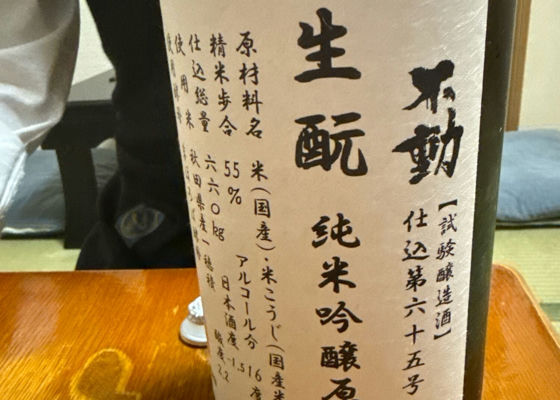 不動
【試験醸造酒】
仕込第六十五号
生酛
純米吟醸原
原材料名 米(国産)・米こうじ(国産米
精米歩合 55% アルコール分 16度
仕込総量 六六〇kg 日本酒度
使用米 秋田県産一穂積 酸度 2.2